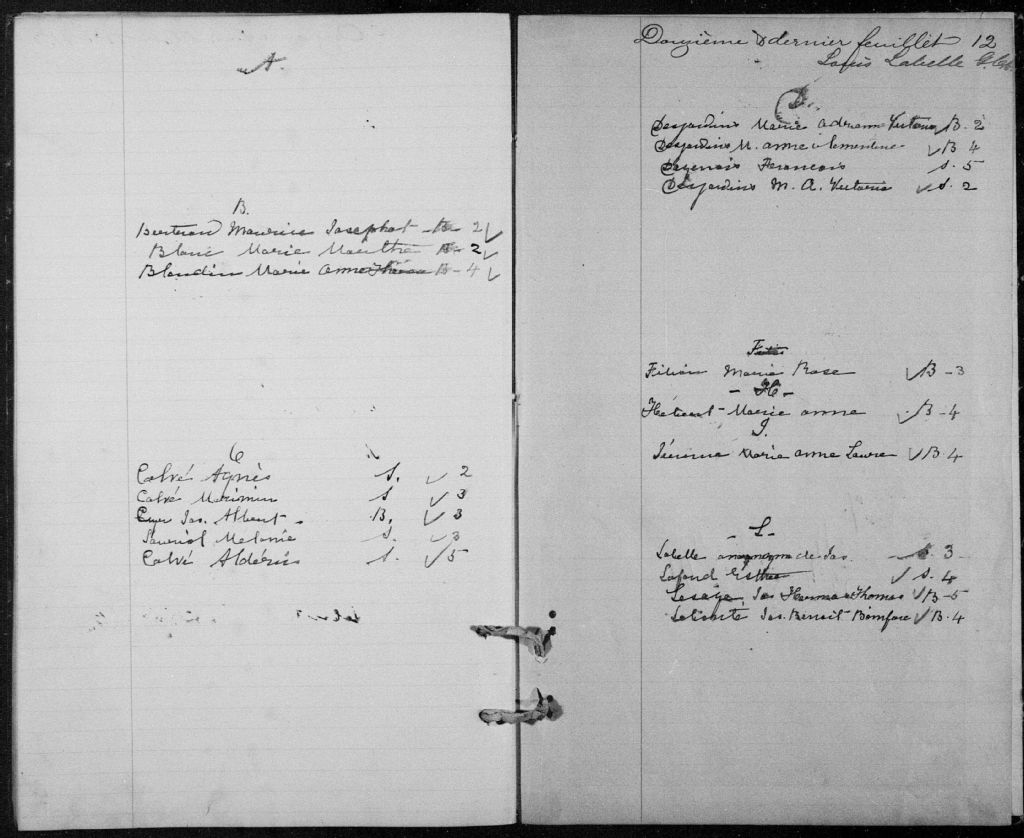 A.
B.
Bertrand Maurice Josephat - B - 2 ✓
Blanc Marie Marthe B - 2 ✓
Blondin Marie Anne B - 4 ✓
C
Calvé Agnès S. ✓ 2
Calvé Maximin S ✓ 3
Jos. Albert. B. ✓ 3
Melanie S. ✓ 3
Calvé Aldéric S. ✓ 5
Douzième & dernier feuillet 12
Louis Labelle
D.
Desjardins Marie Adrianne ✓ B. 2
Desjardins M. Anne Clementine ✓ B 4
Dagenais Francois S. 5
Desjardins M. A. ✓ S. 2
F
Filion Marie Rose ✓ B - 3
- H -
Marie Anne ✓ B - 4
J.
Jérome Marie Anne Laure ✓ B. 4
- L -
Labelle anonyme de Jos. S. 3
Lafond Esther ✓ S. 4
Lesage Jos Thomas ✓ B - 5
Jos. Benoit Boniface ✓ B. 4